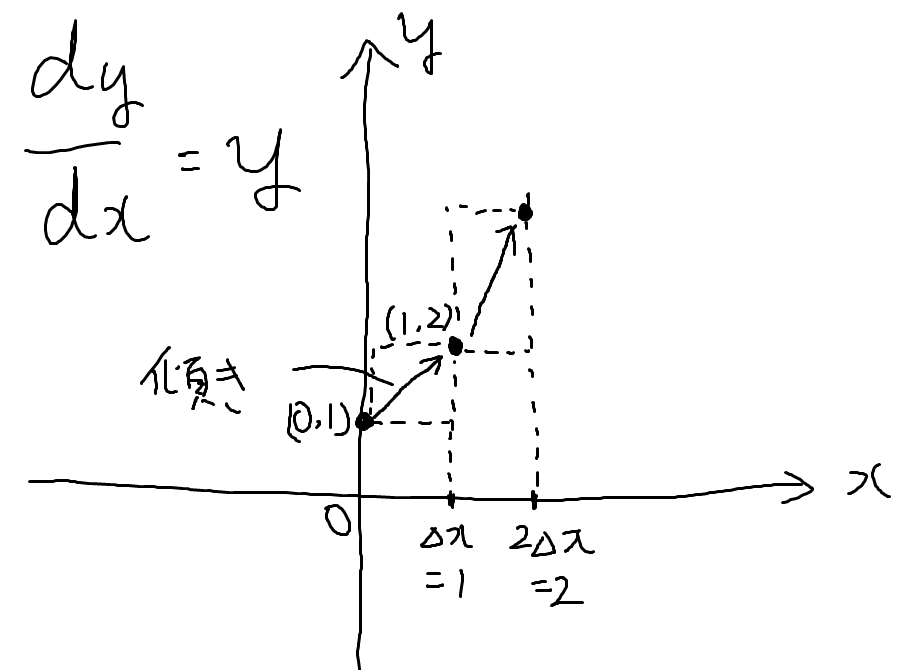 dy/dx = y
y
(1,2)
傾き
(0,1)
x
0
Δx
=1
2Δx
=2